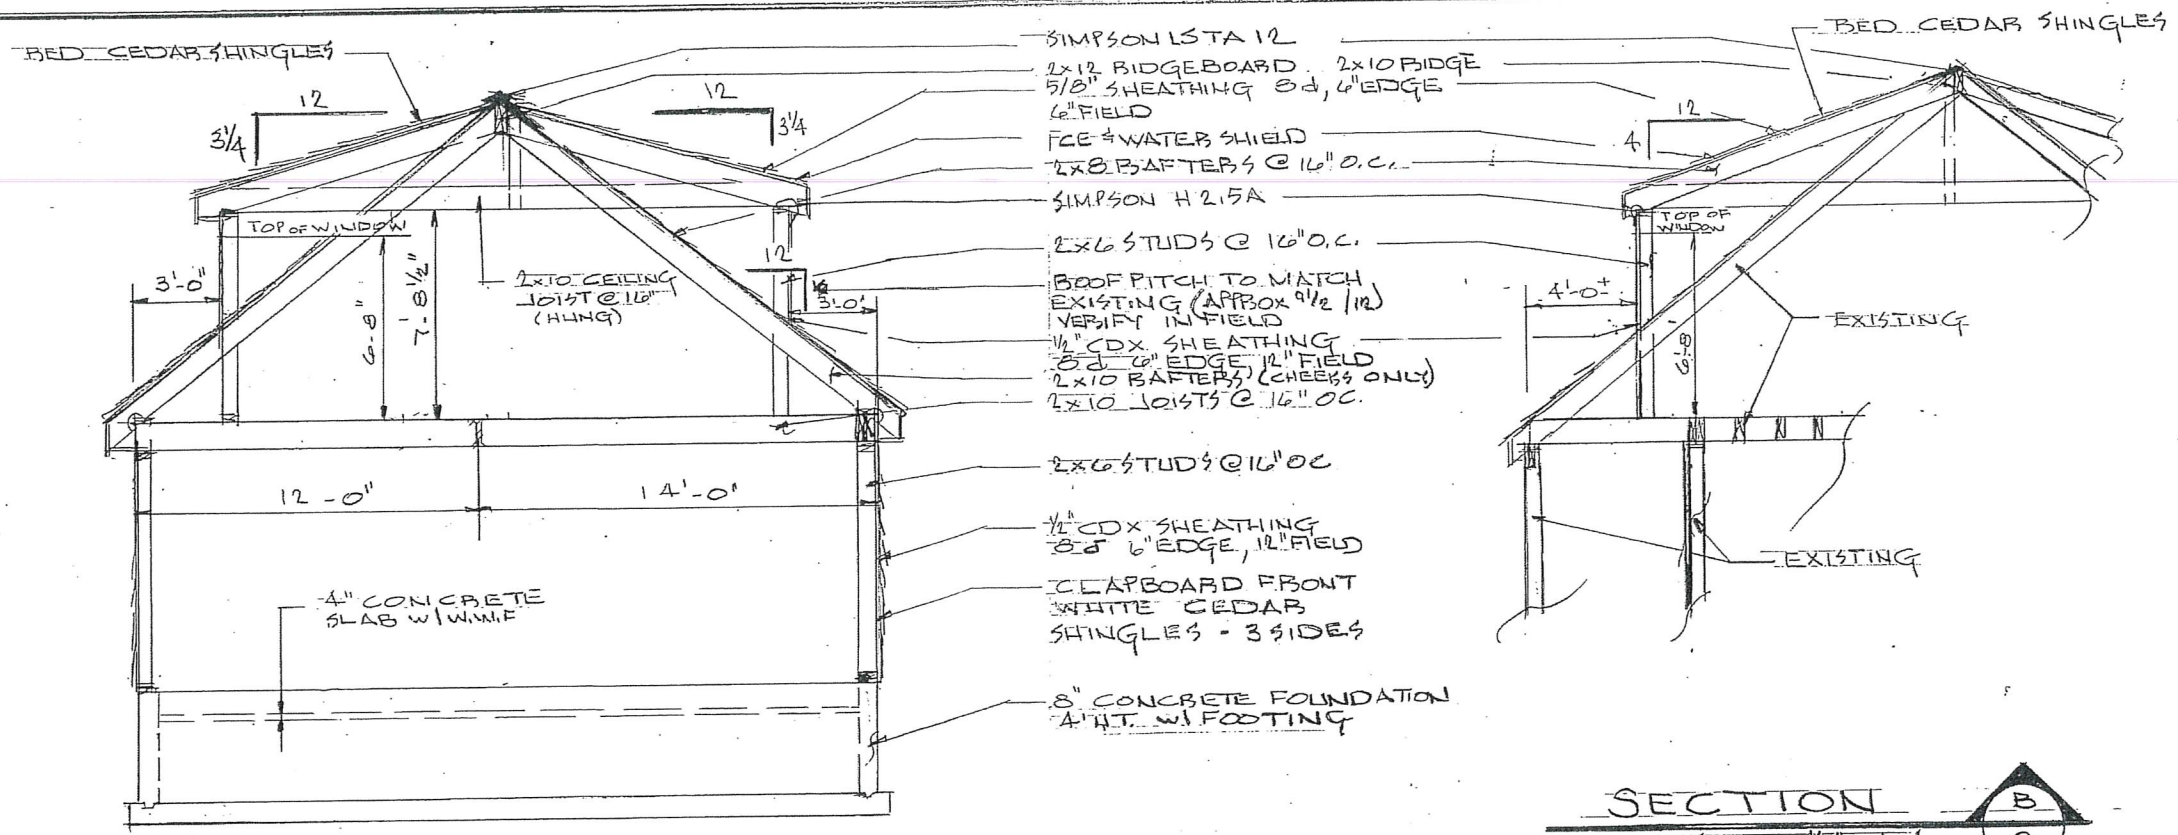 RED CEDAR SHINGLES
12
3 1/4
12
3 1/4
TOP OF WINDOW
3'-0"
6'-8"
7'-8 1/2"
2x10 CEILING
JOIST @ 16"
(HUNG)
12
3'-0"
12'-0"
14'-0"
4" CONCRETE
SLAB W/ W.W.F
SIMPSON LSTA 12
2x12 RIDGEBOARD 2x10 RIDGE
5/8" SHEATHING 8d, 6" EDGE
6" FIELD
ICE & WATER SHIELD
2x8 RAFTERS @ 16" O.C.
SIMPSON H 2.5A
2x6 STUDS @ 16" O.C.
ROOF PITCH TO MATCH
EXISTING (APPROX 9 1/2 /12)
VERIFY IN FIELD
1/2" CDX SHEATHING
8d 6" EDGE, 12" FIELD
2x10 RAFTERS (CHEEKS ONLY)
2x10 JOISTS @ 16" OC.
2x6 STUDS @ 16" OC
1/2" CDX SHEATHING
8d 6" EDGE, 12" FIELD
CLAPBOARD FRONT
WHITE CEDAR
SHINGLES - 3 SIDES
8" CONCRETE FOUNDATION
4' HT. W/ FOOTING
RED CEDAR SHINGLES
12
4
TOP OF
WINDOW
4'-0"±
6'-8"
EXISTING
EXISTING
SECTION
B